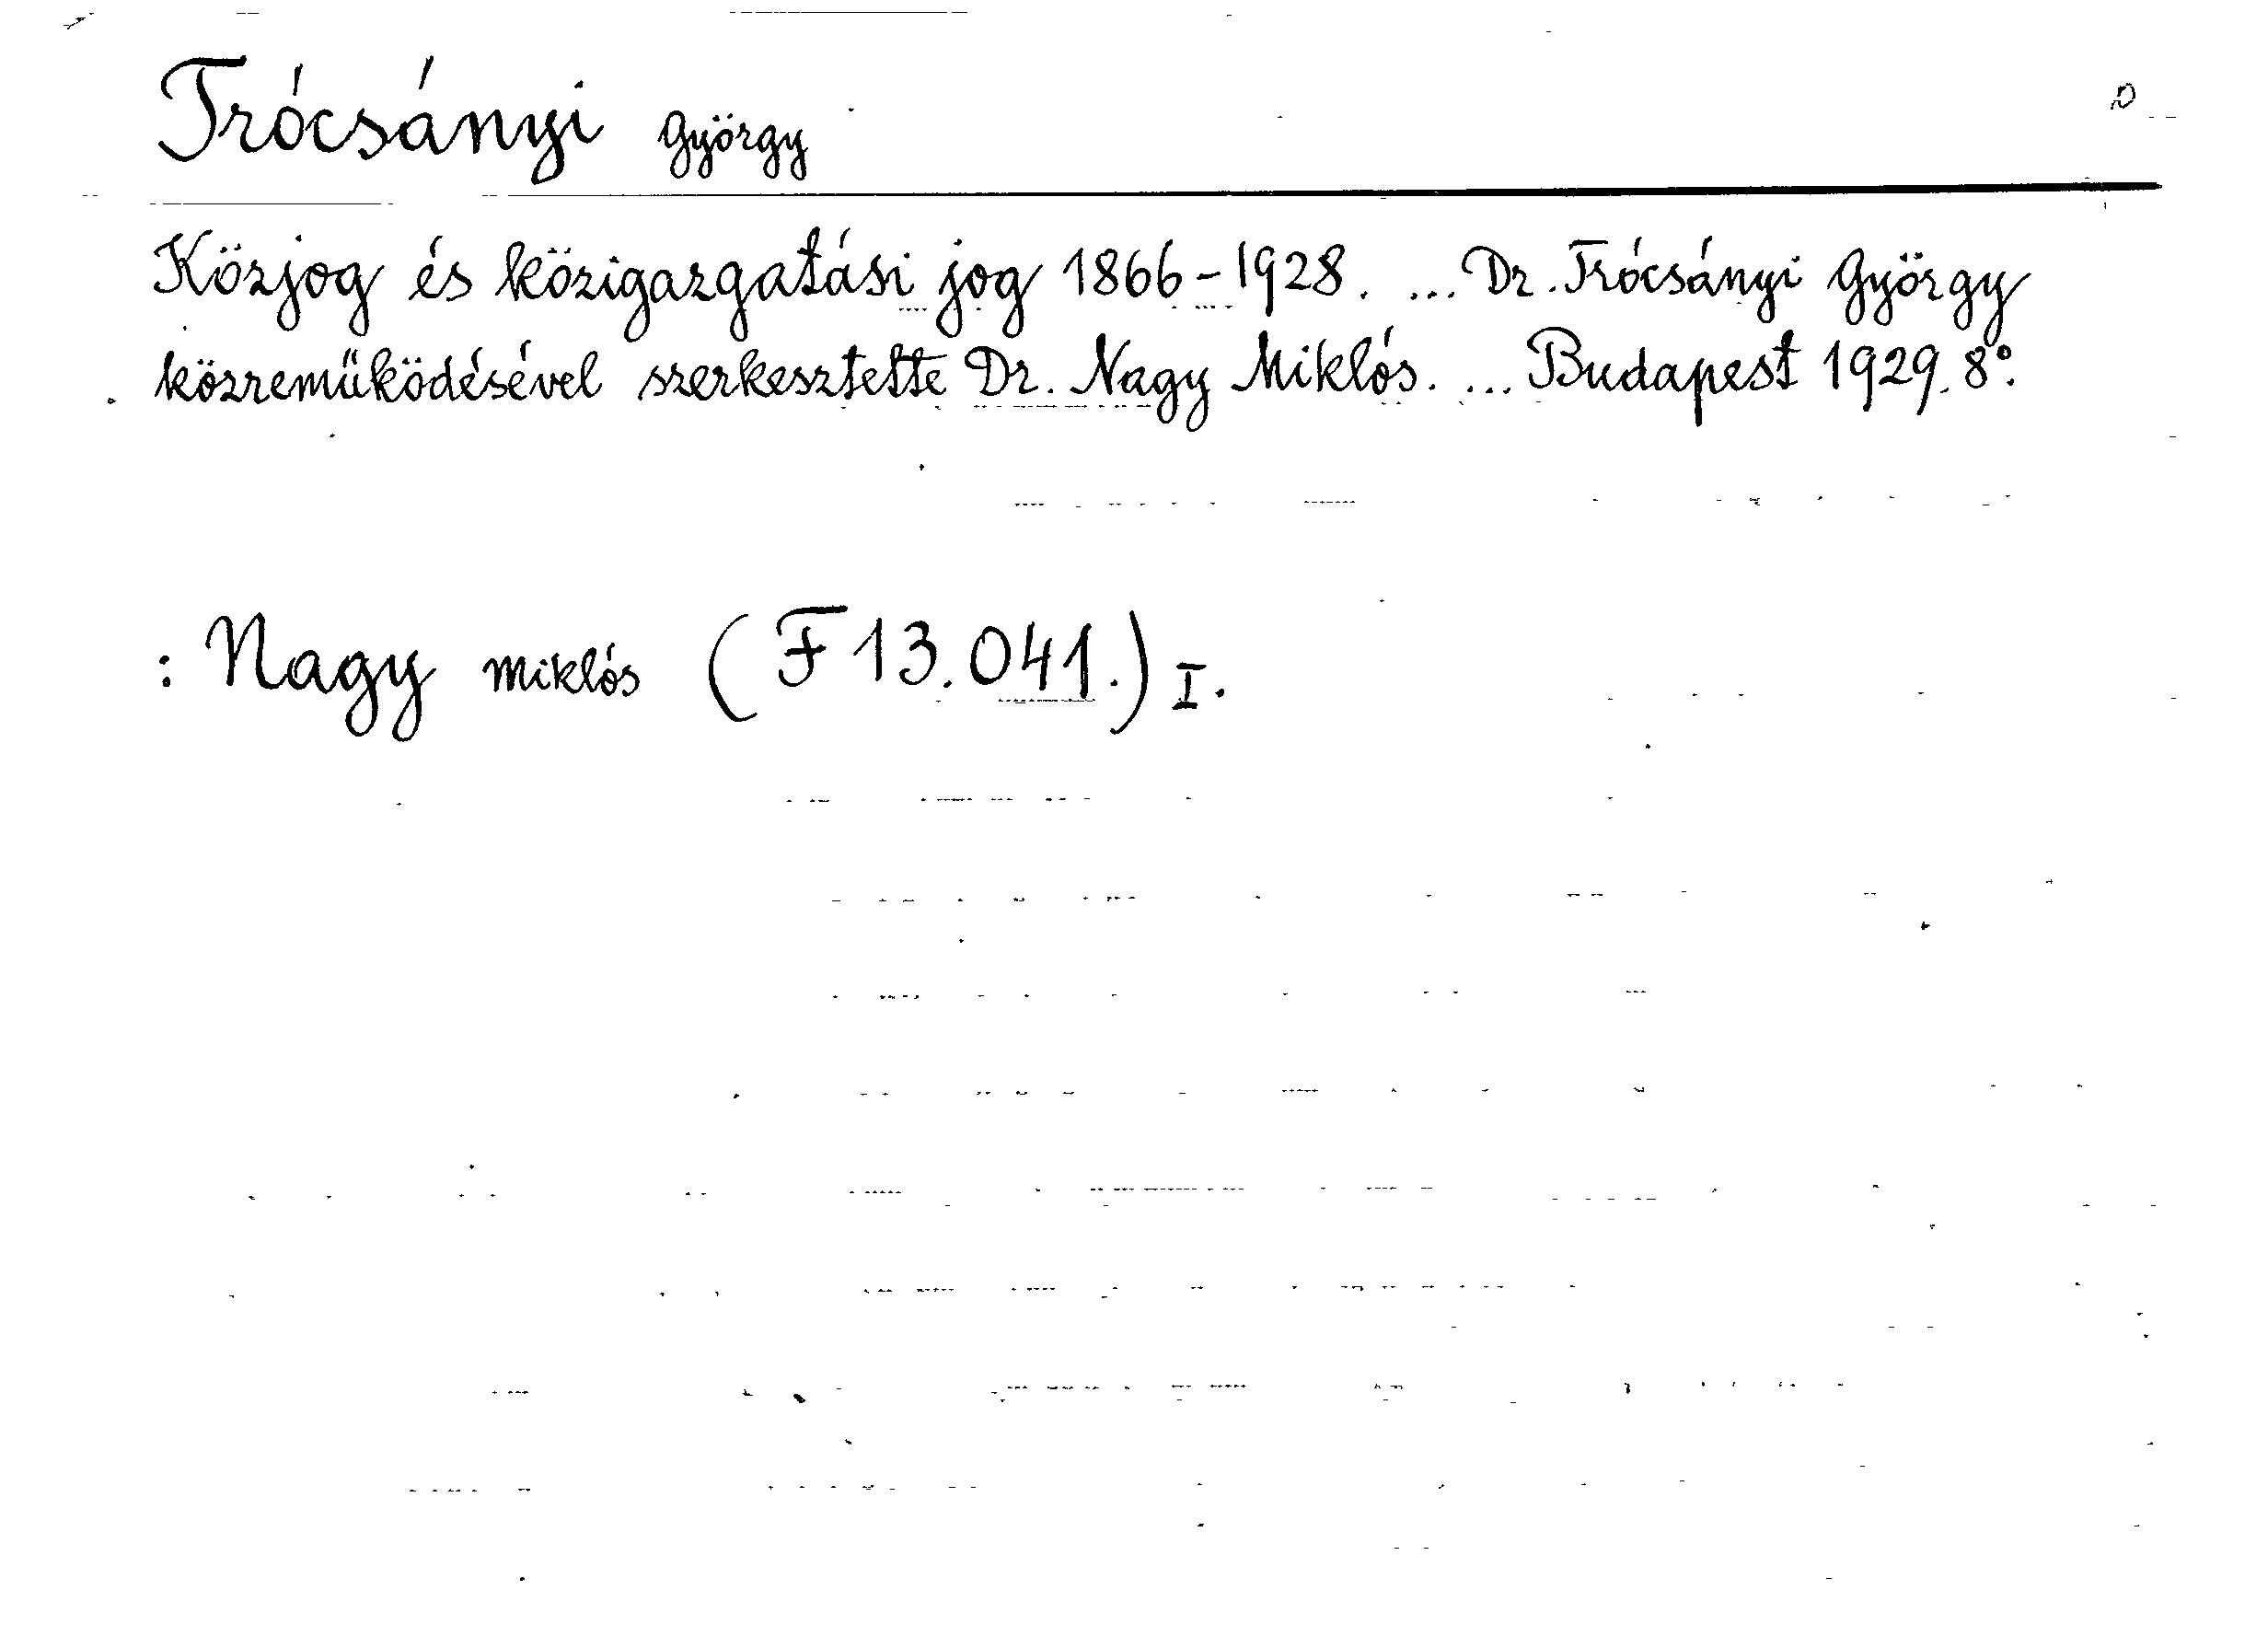 Trócsányi György
Közjog és közigazgatási jog 1866-1928. ... Dr. Trócsányi György
közreműködésével szerkesztette Dr. Nagy Miklós. ... Budapest 1929. 8°.
: Nagy Miklós (F 13.041.) I.